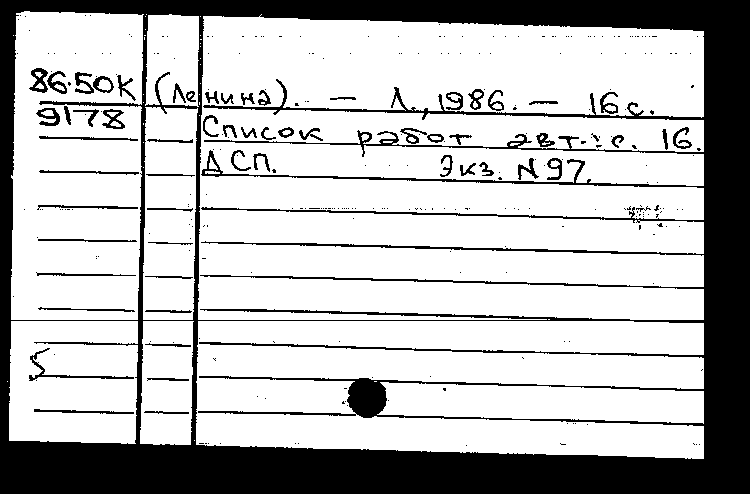 86-50К (Ленина). — Л., 1986. — 16 с.
9178
Список работ авт.: с. 16.
ДСП. Экз. N 97.
5